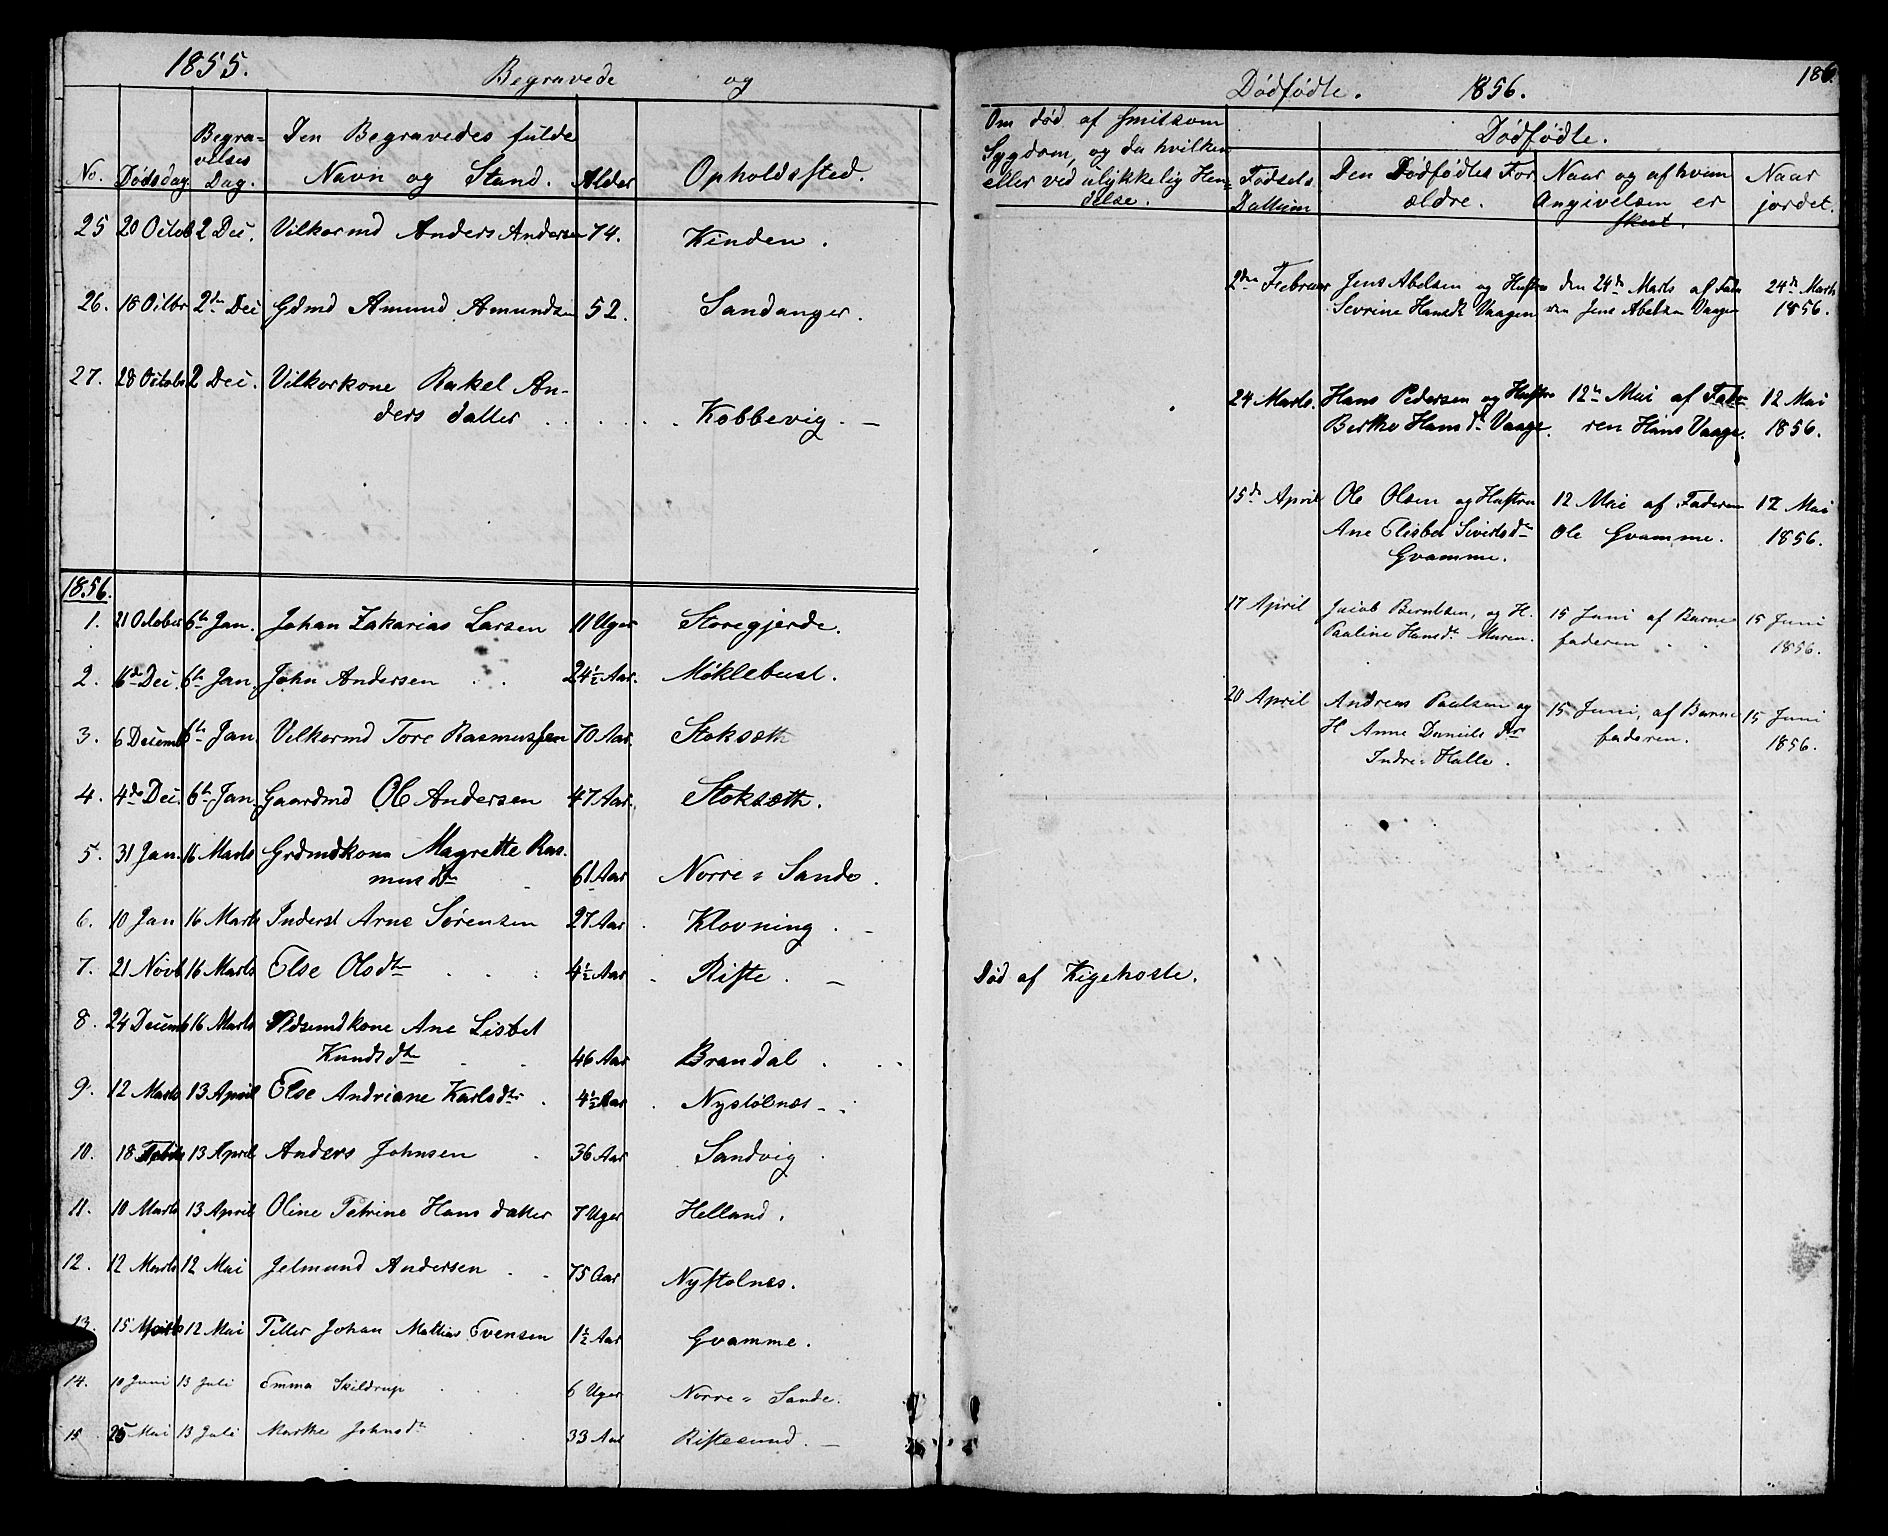 1855. Begravede og
No. Dødsdag. Begravelses Dag. Den Begravedes fulde Navn og Stand. Alder Opholdssted.
25 20 Octob 2 Dec. Vilkormd Anders Andersen 74. Kinden.
26. 18 Octbr 2den Dec Gdmd Amund Amundsen 52. Sandanger.
27. 28 Octobr 2 Dec. Vilkorkone Rakel An-
ders datter . . . . . . Kobbevig. —
1856.
1. 21 October 6te Jan. Johan Zakarias Larsen 11 Uger Storegjerde.
2. 6te Dec. 6te Jan. John Andersen . . 24½ Aar. Møklebust.
3. 6 Decemb 6te Jan. Vilkormd Tore Rasmussen 70 Aar. Stoksæth
4. 4de Dec. 6te Jan. Gaardmd Ole Andersen 47 Aar. Stoksæth.
5. 31 Jan. 16 Marts Grdmdkone Magrette Ras-
musdtr 61 Aar Norre = Sande.
6. 10 Jan 16 Marts Inderst Arne Sørensen 27 Aar. Klovning. —
7. 21 Novb 16 Marts Else Olsdtr . . . 4½ Aar. Riste. —
8. 24 Decemb 16 Marts Pdsmdkone Ane Lisbet
Knudsdtr . . 46 Aar Brandal . . .
9. 12 Marts 13 April Else Andriane Karlsdtr. 4½ Aar. Nystølnes - -
10. 18 13 April Anders Johnsen . 36 Aar. Sandvig.
11. 10 Marts 13 April Oline Petrine Hans datter 7 Uger Helland.
12. 12 Marts 12 Mai Jelmund Andersen . . 75 Aar Nystølnes.
13. 15 Marts 12 Mai Petter Johan Mathias Evensen 1½ Aar Gvamme.
14. 10 Juni 13 Juli Emma Skildrup . . . 6 Uger Norre = Sande.
15 25 Mai 13 Juli Marthe Johnsdtr . . 33 Aar Ristesund. —
Dødfødte. 1856. 186.
Om død af smitsom
Sygdom, og da hvilken
eller ved ulykkelig Hen=
delse.
Dødfødte.
Fødsels Dattum Den Dødfødtes Forældre. Naar og af hvem Angivelsen er skeet. Naar jordet.
2den Februar Jens Abelsen og Hustru den 24de Marts af Fade 24de Marts
Sevrine Hansdtr Vaagen ren Jens Abelsen Vaagen 1856.
24 Marts. Hans Pedersen og Hustru 12te Mai af Fade 12 Mai
Berthe Hansdtr Vaage. ren Hans Vaage. 1856.
15de April Ole Olsen og Hustru 12 Mai af Faderen 12 Mai
Ane Elisbet Sivertsdtr Ole Gvamme. 1856.
Gvamme.
17 April Jacob Berntsen, og H. 15 Juni af Barne 15 Juni
Pauline Hansdtr Muren. faderen . . 1856.
20 April Andreas Paulsen og 15 Juni, af Barne 15 Juni
H Anne Daniels dtr faderen. 1856.
Indre = Halle.
Død af Kigehoste.